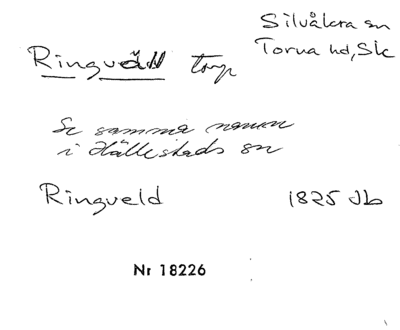 Silvåkra sn
Torna hd, Sk
Ringväll torp
Se samma namn
i Hällestads sn
Ringveld 1825 Jb
Nr 18226